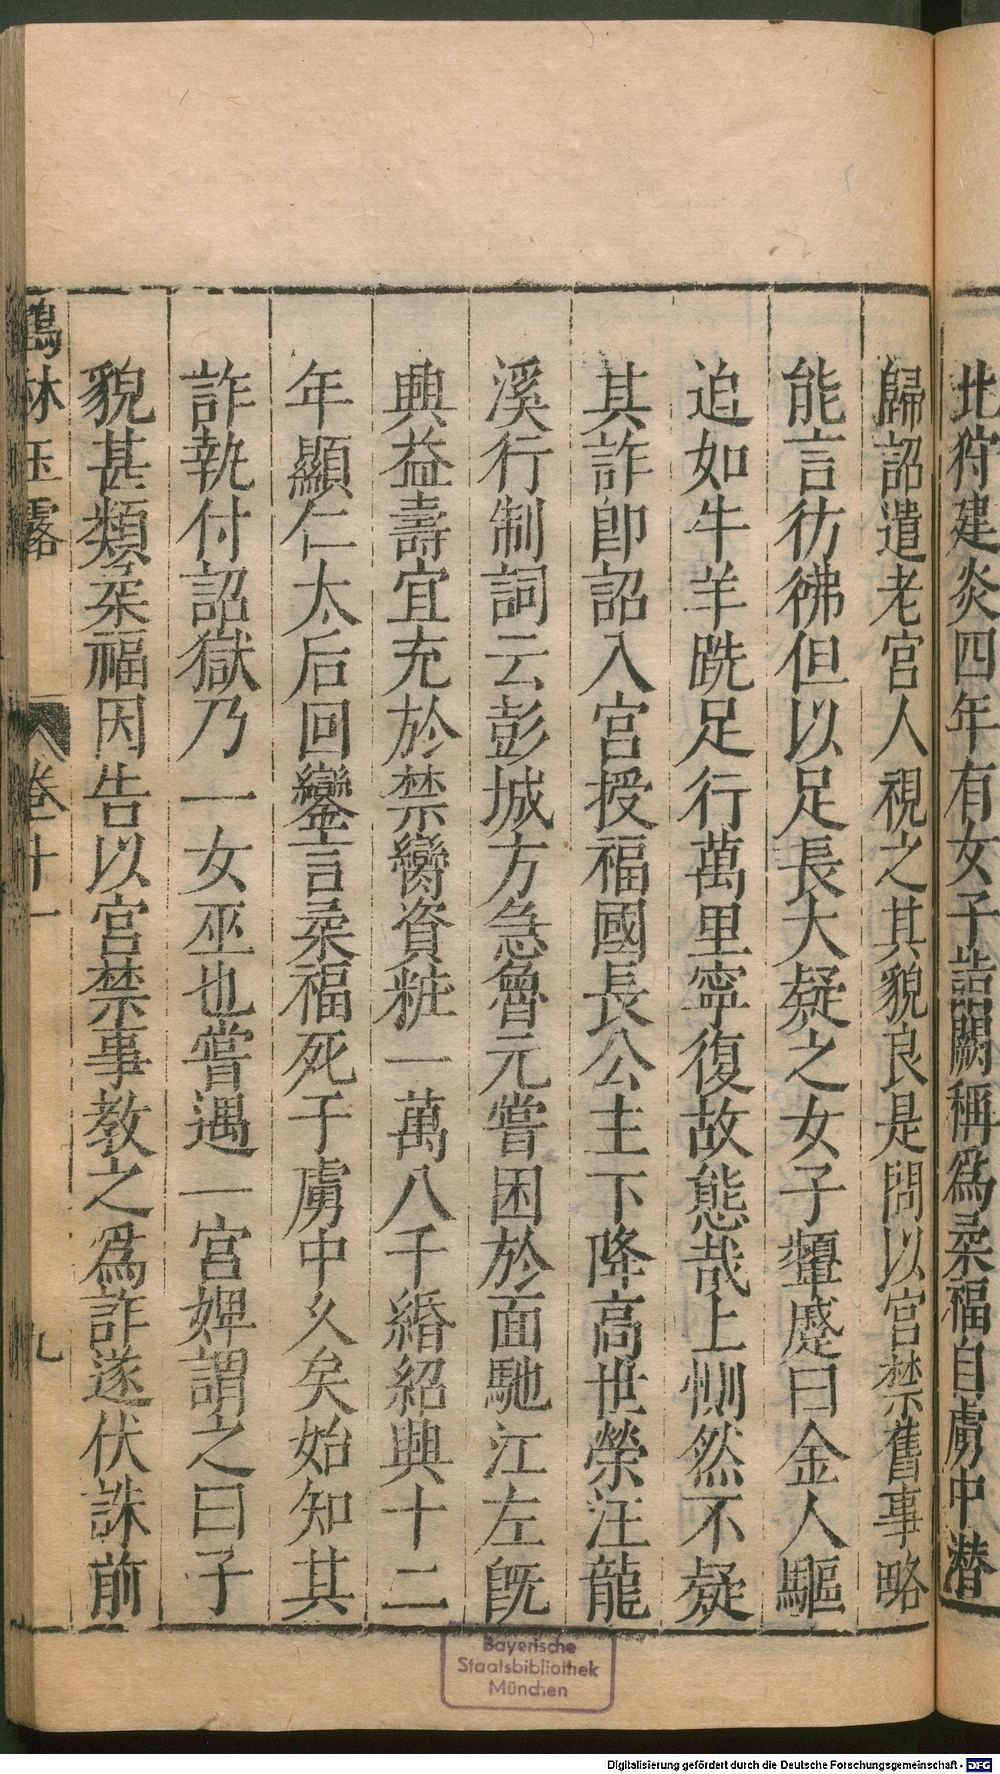 北狩建炎四年有女子詣闕稱爲柔福自虜中潛
歸詔遣老宮人視之其貌良是問以宮禁舊事略
能言彷彿但以足長大疑之女子顰蹙曰金人驅
追如牛羊跣足行萬里寧復故態哉上惻然不疑
其詐卽詔入宮授福國長公主下降高世榮汪龍
溪行制詞云彭城方急魯元嘗困於面馳江左旣
興益壽宜充於禁臠資粧一萬八千緡紹興十二
年顯仁太后回鑾言柔福死于虜中久矣始知其
詐執付詔獄乃一女巫也嘗遇一宮婢謂之曰子
貌甚類柔福因告以宮禁事教之爲詐遂伏誅前
鶴林玉露 卷十一 九
Bayerische
Staatsbibliothek
München
Digitalisierung gefördert durch die Deutsche Forschungsgemeinschaft - DFG